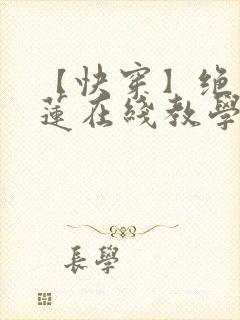 【快穿】绝
莲在线教學
長學